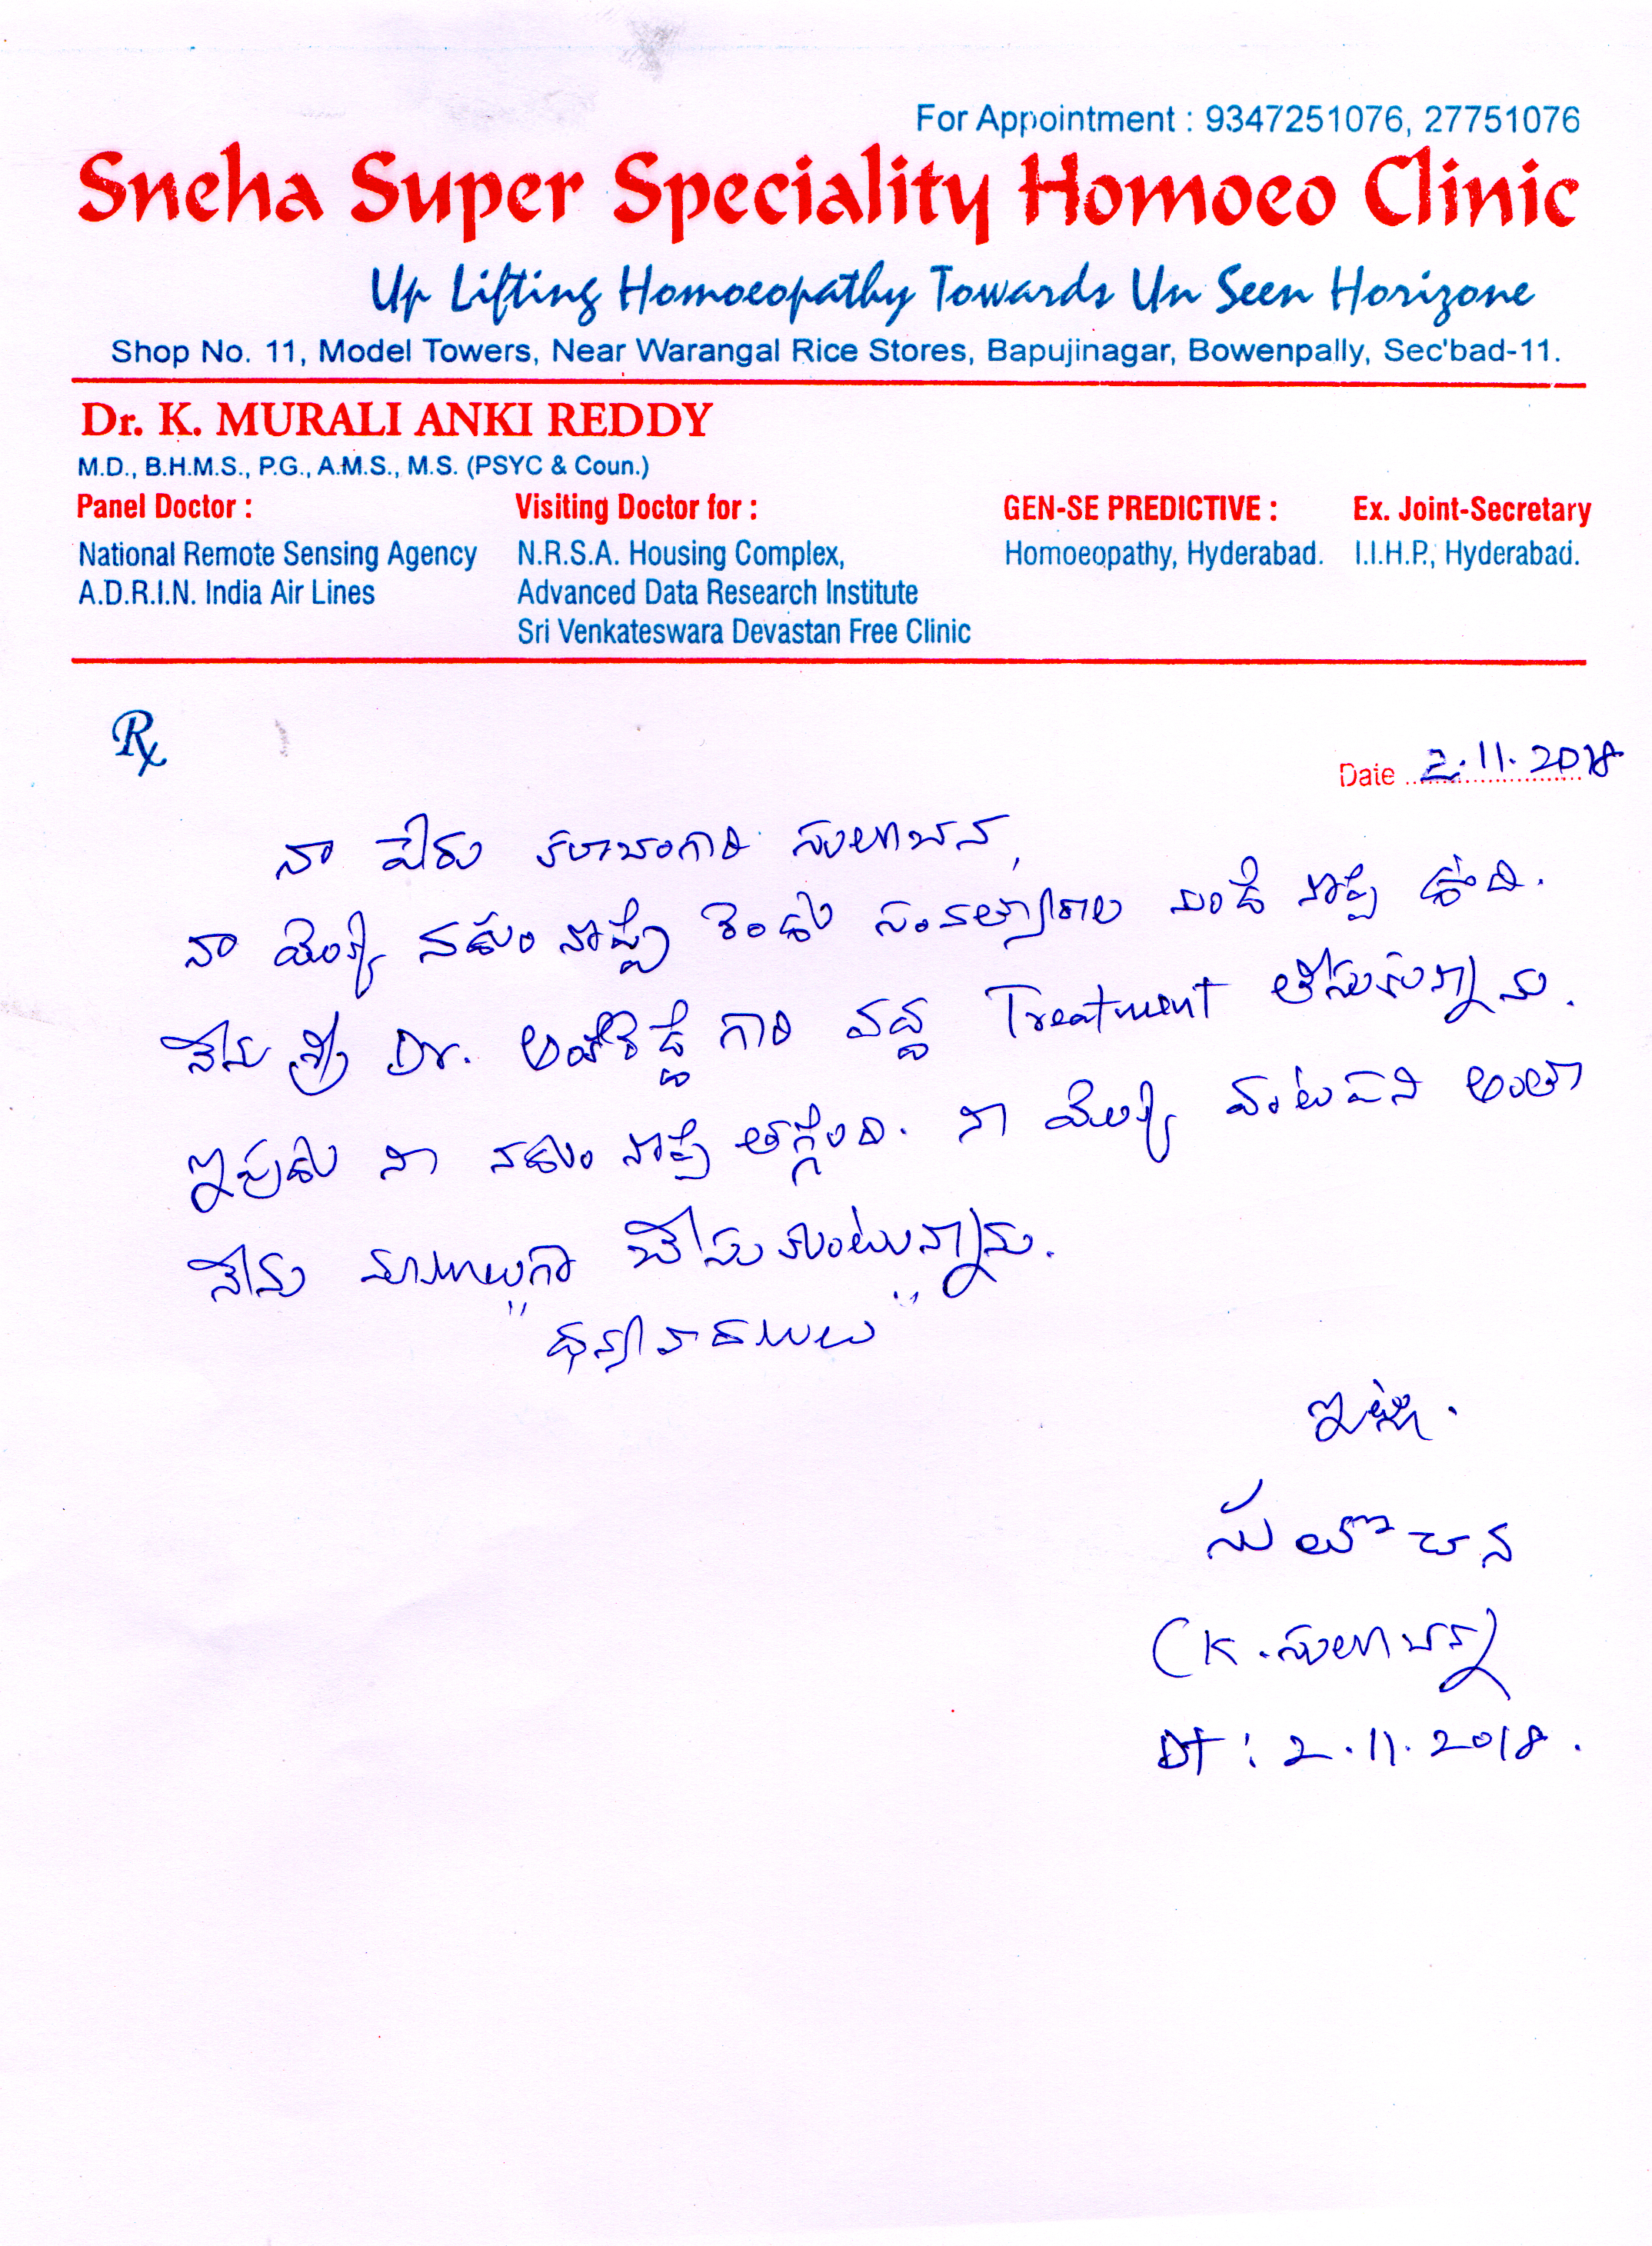 For Appointment : 9347251076, 27751076
Sneha Super Speciality Homoeo Clinic
Up Lifting Homoeopathy Towards Un Seen Horizone
Shop No. 11, Model Towers, Near Warangal Rice Stores, Bapujinagar, Bowenpally, Sec'bad-11.
Dr. K. MURALI ANKI REDDY
M.D., B.H.M.S., P.G., A.M.S., M.S. (PSYC & Coun.)
Panel Doctor : Visiting Doctor for : GEN-SE PREDICTIVE : Ex. Joint-Secretary
National Remote Sensing Agency N.R.S.A. Housing Complex, Homoeopathy, Hyderabad. I.I.H.P., Hyderabad.
A.D.R.I.N. India Air Lines Advanced Data Research Institute
Sri Venkateswara Devastan Free Clinic
Rx
Date 2.11.2018
నా పేరు సులోచన,
నా యొక్క నడుం నొప్పి రెండు సంవత్సరాల నుండి నొప్పి ఉంది.
నేను శ్రీ Dr. అంకిరెడ్డి గారి వద్ద Treatment తీసుకున్నాను.
ఇపుడు నా నడుం నొప్పి తగ్గింది. నా యొక్క వంటపని అంతా
నేను మామూలుగా చేసుకుంటున్నాను.
"ధన్యవాదములు"
ఇట్లు.
సులోచన
(K. సులోచన)
DT : 2.11.2018.